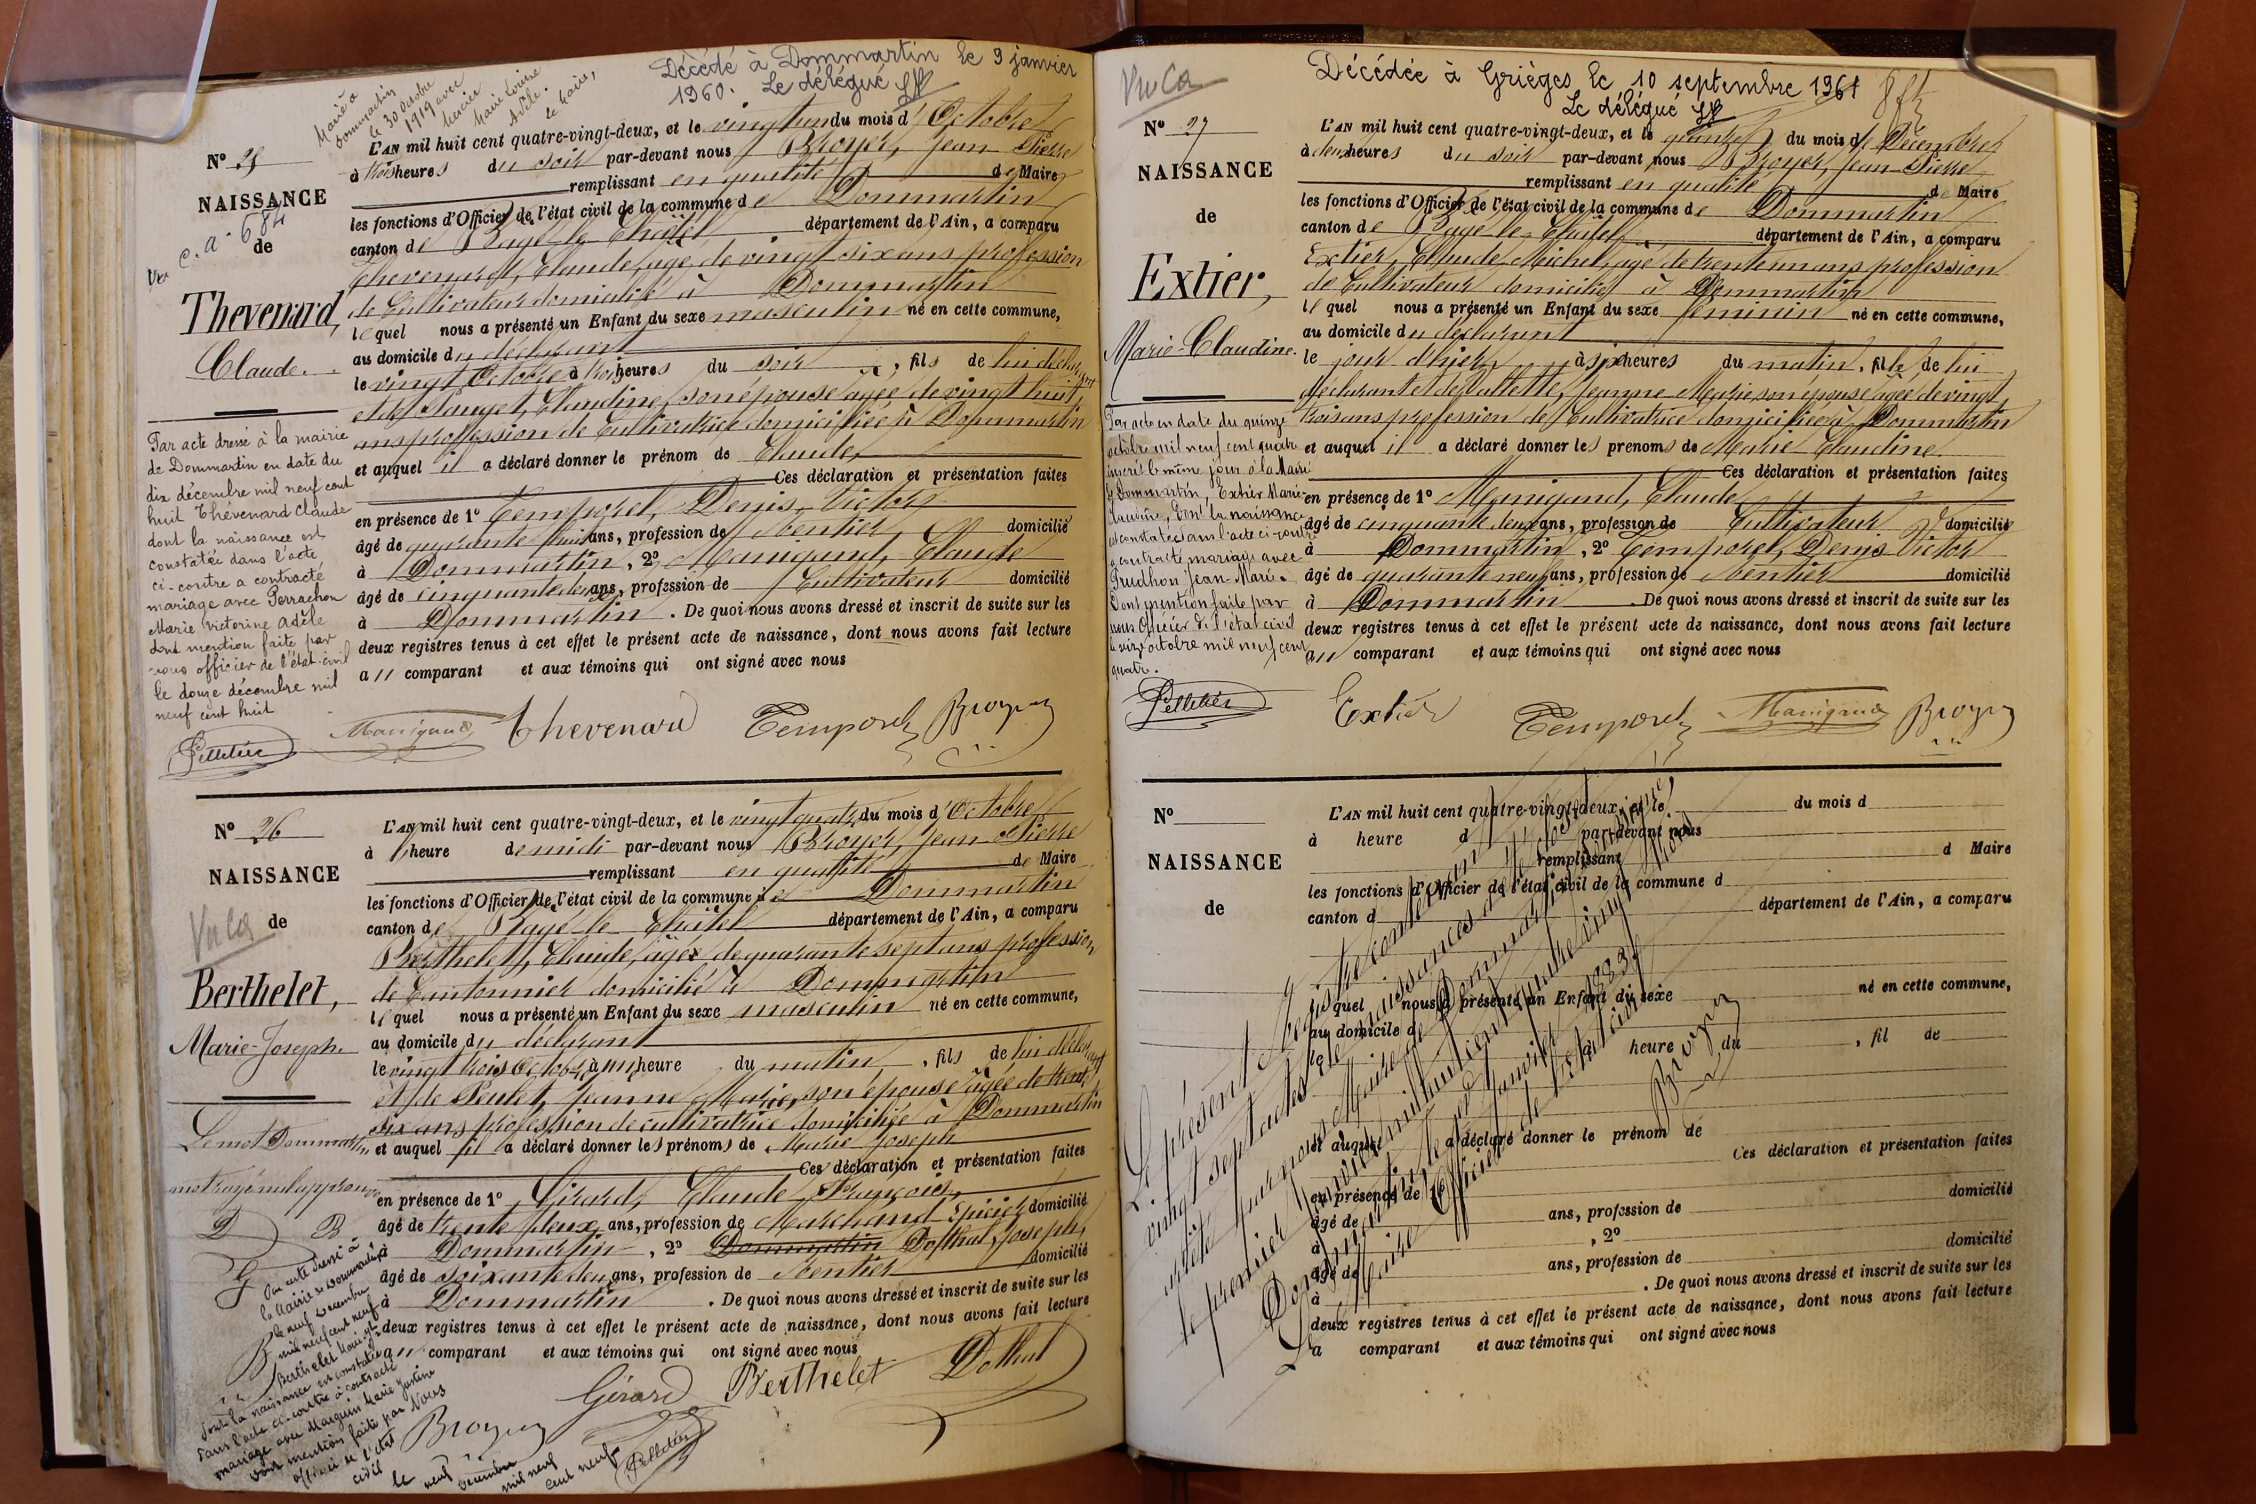 Décédé à Dommartin le 9 janvier
1960. Le délégué
Marié à
Dommartin
le 30 octobre
1919 avec
Mercier
Marie Louise
Adèle.
Le Maire,
N° 25
NAISSANCE
de
c. a. 684
Thevenard,
Claude.
L'AN mil huit cent quatre-vingt-deux, et le vingt un du mois d'Octobre
à trois heures du soir par-devant nous Broyer, Jean Pierre
remplissant en qualité de Maire
les fonctions d'Officier de l'état civil de la commune de Dommartin
canton de Bagé-le-Châtel département de l'Ain, a comparu
Thevenard, Claude, âgé de vingt six ans profession
de Cultivateur domicilié à Dommartin
lequel nous a présenté un Enfant du sexe masculin né en cette commune,
au domicile du déclarant
le vingt Octobre à trois heures du soir, fils de lui déclarant
et de Pauget, Claudine, son épouse âgée de vingt huit
ans profession de Cultivatrice domiciliée à Dommartin
et auquel il a déclaré donner le prénom de Claude
Ces déclaration et présentation faites
en présence de 1° Temporel, Denis, Victor
âgé de quarante huit ans, profession de Rentier domicilié
à Dommartin, 2° Manigand, Claude
âgé de cinquante deux ans, profession de Cultivateur domicilié
à Dommartin. De quoi nous avons dressé et inscrit de suite sur les
deux registres tenus à cet effet le présent acte de naissance, dont nous avons fait lecture
au comparant et aux témoins qui ont signé avec nous
Par acte dressé à la mairie
de Dommartin en date du
dix décembre mil neuf cent
huit Thévenard Claude
dont la naissance est
constatée dans l'acte
ci-contre a contracté
mariage avec Perrachon
Marie Victorine Adèle
dont mention faite par
nous officier de l'état-civil
le douze décembre mil
neuf cent huit
Pelletier Manigand Thevenard Temporel Broyer
N° 26
NAISSANCE
de
Vu Ca
Berthelet,
Marie-Joseph.
L'AN mil huit cent quatre-vingt-deux, et le vingt quatre du mois d'Octobre
à heure de midi par-devant nous Broyer, Jean Pierre
remplissant en qualité de Maire
les fonctions d'Officier de l'état civil de la commune de Dommartin
canton de Bagé-le-Châtel département de l'Ain, a comparu
Berthelet, Claude, âgé de quarante sept ans profession
de Cantonnier domicilié à Dommartin
lequel nous a présenté un Enfant du sexe masculin né en cette commune,
au domicile du déclarant
le vingt trois Octobre à une heure du matin, fils de lui déclarant
et de Peulet, Jeanne Marie, son épouse âgée de trente
six ans profession de cultivatrice domiciliée à Dommartin
et auquel il a déclaré donner les prénoms de Marie Joseph
Ces déclaration et présentation faites
en présence de 1° Girard, Claude François,
âgé de trente deux ans, profession de Marchand Epicier domicilié
à Dommartin, 2° Dommartin Dothal, Joseph,
âgé de soixante deux ans, profession de Rentier domicilié
à Dommartin. De quoi nous avons dressé et inscrit de suite sur les
deux registres tenus à cet effet le présent acte de naissance, dont nous avons fait lecture
au comparant et aux témoins qui ont signé avec nous
Le mot Dommartin
mot rayé nul approuvé
D B
G
B
Par acte dressé à
la Mairie de Dommartin
le neuf décembre
mil neuf cent neuf
Berthelet Marie Joseph
dont la naissance est constatée
dans l'acte ci-contre a contracté
mariage avec Marguin Marie Justine
dont mention faite par Nous
officier de l'état
civil le neuf
décembre
mil neuf
cent neuf
Gérard Berthelet Dothal
Broyer Pelletier
Vu Ca
Décédée à Grièges le 10 septembre 1961
Le délégué
N° 27
NAISSANCE
de
Extier,
Marie-Claudine.
L'AN mil huit cent quatre-vingt-deux, et le quinze du mois de Décembre
à deux heures du soir par-devant nous Broyer, Jean-Pierre
remplissant en qualité de Maire
les fonctions d'Officier de l'état civil de la commune de Dommartin
canton de Bagé-le-Châtel département de l'Ain, a comparu
Extier, Claude-Michel, âgé de trente un ans profession
de Cultivateur domicilié à Dommartin
lequel nous a présenté un Enfant du sexe féminin né en cette commune,
au domicile du déclarant
le jour d'hier, à six heures du matin, fille de lui
déclarant et de Pallette, Jeanne Marie, son épouse âgée de vingt
trois ans profession de Cultivatrice domiciliée à Dommartin
et auquel il a déclaré donner les prénoms de Marie Claudine.
Ces déclaration et présentation faites
en présence de 1° Manigand, Claude
âgé de cinquante deux ans, profession de Cultivateur domicilié
à Dommartin, 2° Temporel, Denis Victor
âgé de quarante neuf ans, profession de Rentier domicilié
à Dommartin. De quoi nous avons dressé et inscrit de suite sur les
deux registres tenus à cet effet le présent acte de naissance, dont nous avons fait lecture
au comparant et aux témoins qui ont signé avec nous
Par acte en date du quinze
octobre mil neuf cent quatre
inscrit le même jour à la Mairie
de Dommartin, Extier Marie
Claudine, dont la naissance
est constatée dans l'acte ci-contre
a contracté mariage avec
Prudhon Jean-Marie.
Dont mention faite par
nous Officier de l'état civil
le seize octobre mil neuf cent
quatre.
Pelletier Extier Temporel Manigand Broyer
N°
NAISSANCE
de
L'AN mil huit cent quatre-vingt-deux, et le du mois d
à heure d par-devant nous
remplissant d Maire
les fonctions d'Officier de l'état civil de la commune d
canton d département de l'Ain, a comparu
quel nous a présenté un Enfant du sexe né en cette commune,
au domicile d
le à heure du , fil de
et auquel a déclaré donner le prénom de
Ces déclaration et présentation faites
en présence de 1°
âgé de ans, profession de domicilié
à , 2°
âgé de ans, profession de domicilié
à . De quoi nous avons dressé et inscrit de suite sur les
deux registres tenus à cet effet le présent acte de naissance, dont nous avons fait lecture
a comparant et aux témoins qui ont signé avec nous
Le présent Registre contenant
vingt sept actes de naissances a été clos et
arrêté par nous Maire de Dommartin
le premier janvier mil huit cent quatre vingt trois
Dommartin le 1er Janvier 1883
Le Maire Officier de l'état civil
Broyer